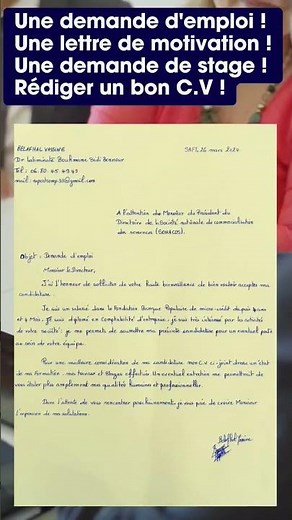 Une demande d'emploi !
Une lettre de motivation !
Une demande de stage !
Rédiger un bon C.V !
BELAFHAL YASSINE
SAFI, 26 mars 2024
Tél : 06.80.45.49.43
A l'attention de Monsieur le Président du
Directoire de la Société nationale de commercialisation
des semences (SONACOS).
Objet : Demande d'emploi
Monsieur le Directeur,
J'ai l'honneur de solliciter de votre haute bienveillance de bien vouloir accepter ma
candidature.
Je suis un salarié dans la Fondation Banque Populaire de micro-crédit depuis
et 4 Mois. Je suis diplômé en Comptabilité d'entreprise, je suis très intéressé par les activités
de votre société ; je me permets de soumettre ma présente candidature pour un éventuel poste
au sein de votre équipe.
Pour une meilleure considération de ma candidature, mon C.V ci-joint dresse un état
de ma formation, mes travaux et stages effectués. Un éventuel entretien me permettrait de
vous étaler plus amplement mes qualités humaines et professionnelles.
Dans l'attente de vous rencontrer prochainement, je vous prie de croire Monsieur
l'expression de mes salutations.